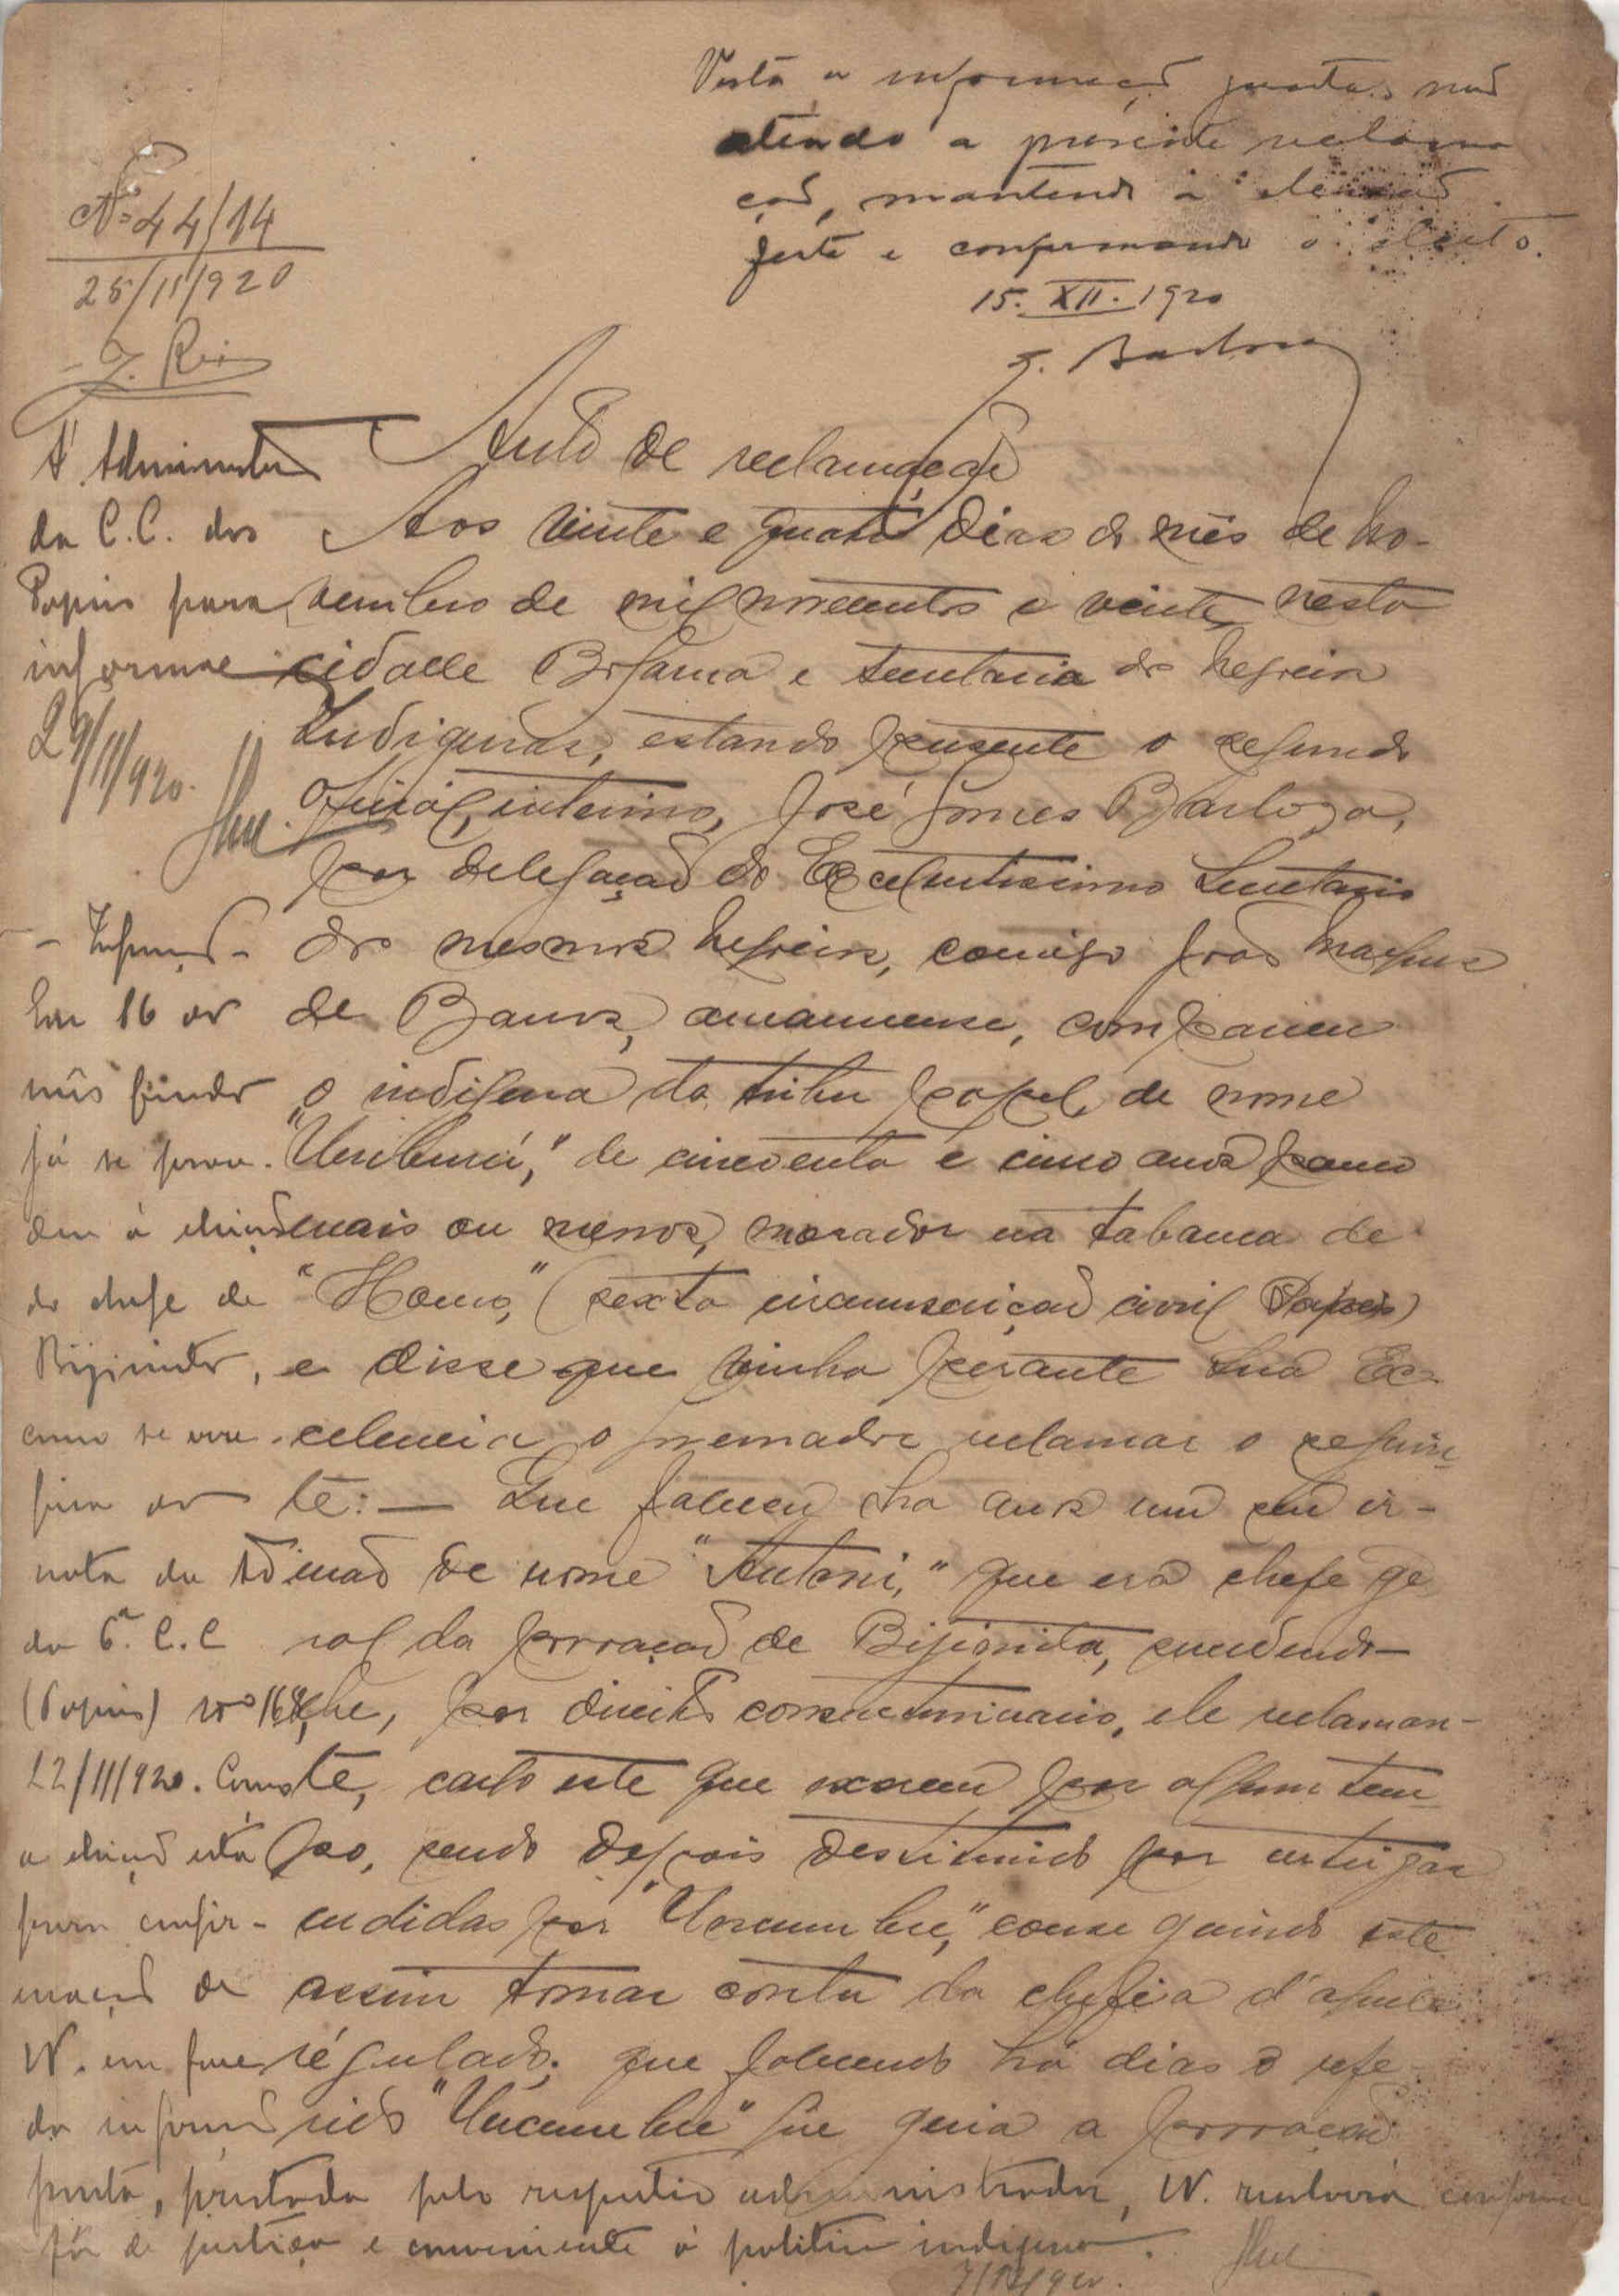 Vista a informação junta, não
atendo a presente reclama
ção, mantendo a eleição
feita e confirmando o eleito.
15. XII. 1920
Nº 44/14
25/11/920
J. Reis
A' Administração
da C.C. dos
Papeis para
informar
29/11/920.
Auto de reclamação
Aos vinte e quatro dias do mês de No-
vembro de mil novecentos e vinte, nesta
cidade Bolama e Secretaria dos Negocios
Indigenas, estando presente o segundo
oficial, interino, José Gomes Barboza,
por delegação do Excelentissimo Secretario
dos mesmos Negocios, comigo João Marques
de Barros, amanuense, compareceu
o indigena da tribu papel, de nome
de cincoenta e cinco anos pouco
mais ou menos, morador na tabanca de
(sexta circunscrição civil Papeis)
e disse que vinha perante Sua Ex-
celencia o Governador reclamar o seguin
te: — Que faleceu ha anos um seu ir-
mão de nome "Antoni," que era chefe ge
ral da povoação de Bijimita, sucedendo-
lhe, por direito consuetudinario, ele reclaman-
te, cargo este que exerceu por algum tem
po, sendo depois destituido por intrigas
urdidas por conseguindo este
assim tomar conta da chefia d'aquele
régulado; que falecendo há dias o refe-
rido que geria a povoação
- Informação -
Em 16 do
mês findo
já se proce
deu á eleição
do chefe de
Bijimita,
como se veri
fica da
nota da Adm.
da 6ª C.C
(Papeis) nº 168,
22/11/920. Como
a eleição está
para confir-
mação de
V. em face
da informação
junta, prestada pelo respectivo administrador, V. resolverá conforme
fôr de justiça e conveniente á politica indigena.
7/12/920.